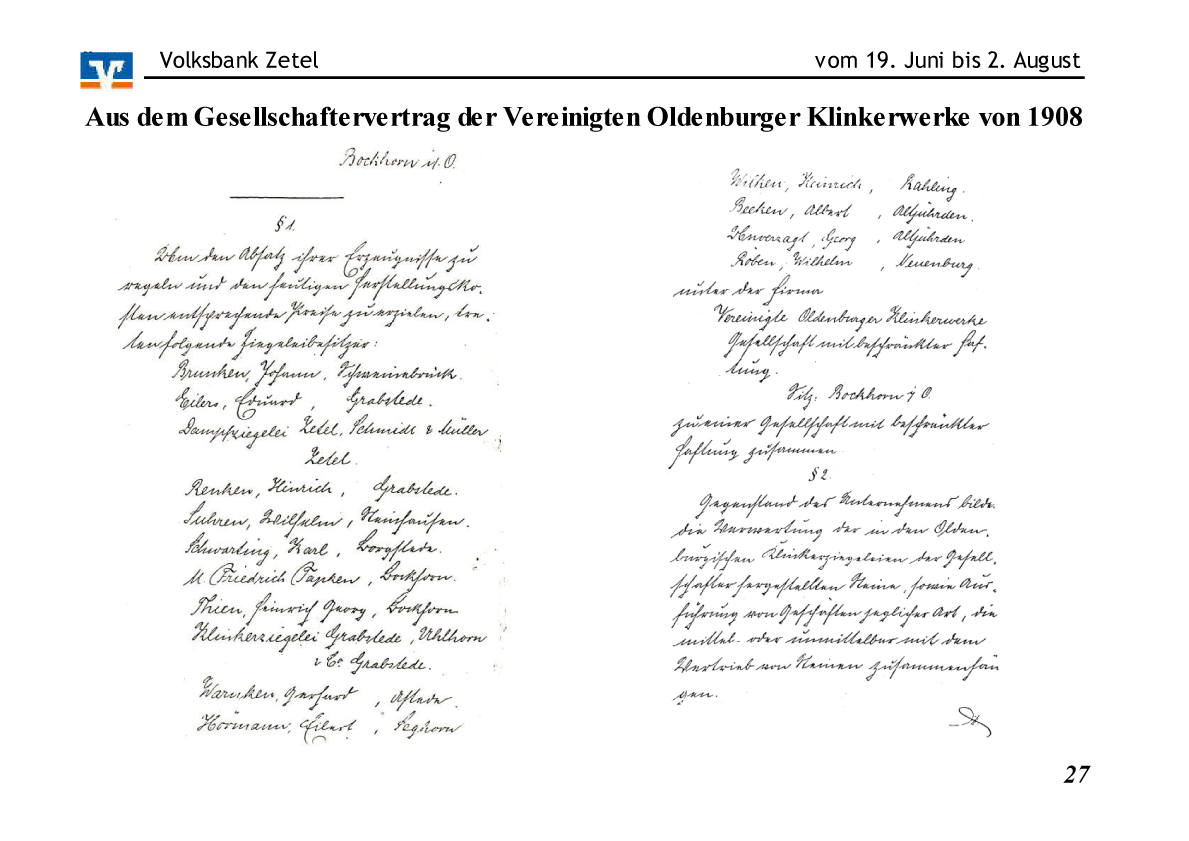 Volksbank Zetel vom 19. Juni bis 2. August
Aus dem Gesellschaftervertrag der Vereinigten Oldenburger Klinkerwerke von 1908
Bockhorn i. O.
§ 1.
Um den Absatz ihrer Erzeugnisse zu
regeln und den heutigen Herstellungsko-
sten entsprechende Preise zu erzielen, tre-
ten folgende Ziegeleibesitzer:
Brunken, Johann, Schweinebrück.
Eilers, Eduard, Grabstede.
Dampfziegelei Zetel, Schmidt & Müller
Zetel.
Renken, Hinrich, Grabstede.
Suhren, Wilhelm, Steinhausen.
Schwarting, Karl, Borgstede.
M. Friedrich Tapken, Bockhorn.
Thien, Heinrich Georg, Bockhorn
Klinkerziegelei Grabstede, Uhlhorn
& Co. Grabstede.
Warnken, Gerhard, Astede.
Hörmann, Eilert, Seghorn
Wilken, Heinrich, Rahling.
Becken, Albert, Altjührden.
Unverzagt, Georg, Altjührden
Röben, Wilhelm, Neuenburg.
unter der Firma
Vereinigte Oldenburger Klinkerwerke
Gesellschaft mit beschränkter Haf-
tung.
Sitz: Bockhorn i. O.
zu einer Gesellschaft mit beschränkter
Haftung zusammen.
§ 2.
Gegenstand des Unternehmens bilde.
die Verwertung der in den Olden-
burgischen Klinkerziegeleien der Gesell-
schafter hergestellten Steine, sowie Aus-
führung von Geschäften jeglicher Art, die
mittel- oder unmittelbar mit dem
Vertrieb von Steinen zusammenhän
gen.
27